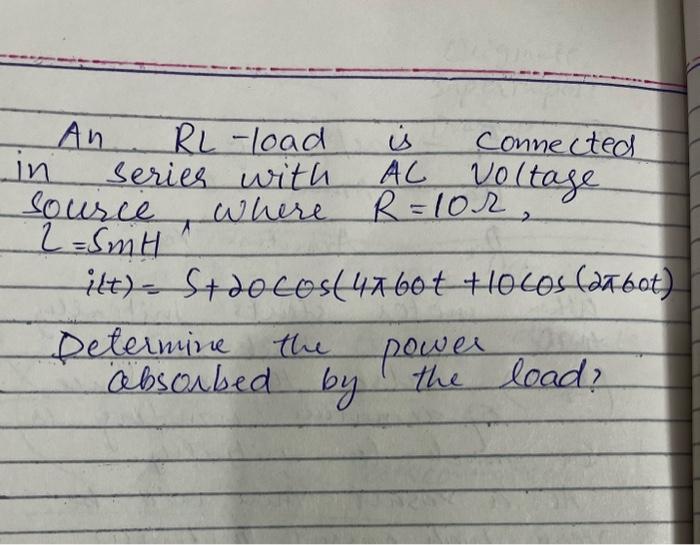 An RL-load is connected
in series with AC Voltage
source, where R=10Ω,
L=5mH
i(t) = 5+20cos(4π60t +10cos(2π60t)
Determine the power
absorbed by the load?